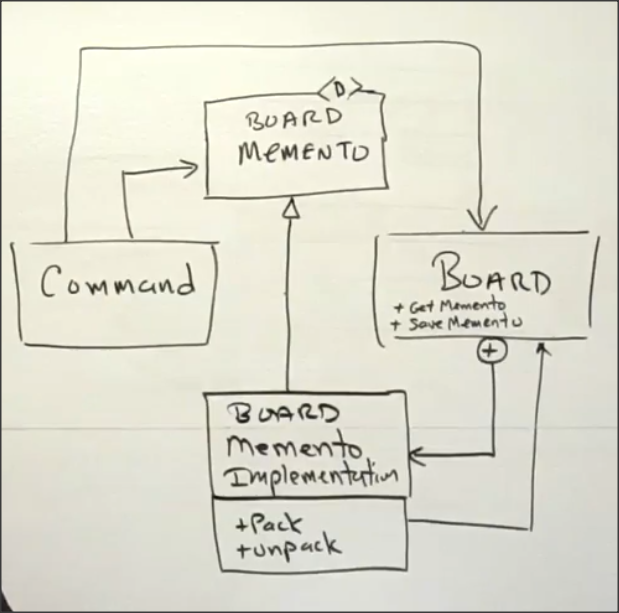 <D>
BOARD
MEMENTO
Command
BOARD
+ Get Memento
+ Save Memento
+
BOARD
Memento
Implementation
+Pack
+unpack